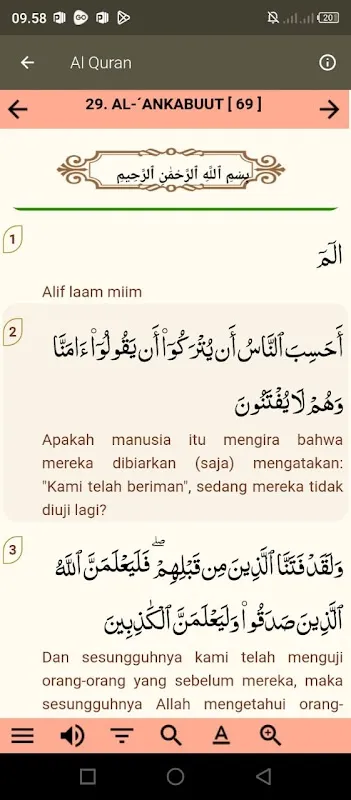 09.58
20
Al Quran
29. AL-´ANKABUUT [ 69 ]
بِسْمِ ٱللَّهِ ٱلرَّحْمَٰنِ ٱلرَّحِيمِ
1
الٓمٓ
Alif laam miim
2
أَحَسِبَ ٱلنَّاسُ أَن يُتْرَكُوٓا۟ أَن يَقُولُوٓا۟ ءَامَنَّا
وَهُمْ لَا يُفْتَنُونَ
Apakah manusia itu mengira bahwa
mereka dibiarkan (saja) mengatakan:
"Kami telah beriman", sedang mereka tidak
diuji lagi?
3
وَلَقَدْ فَتَنَّا ٱلَّذِينَ مِن قَبْلِهِمْ ۖ فَلَيَعْلَمَنَّ ٱللَّهُ
ٱلَّذِينَ صَدَقُوا۟ وَلَيَعْلَمَنَّ ٱلْكَٰذِبِينَ
Dan sesungguhnya kami telah menguji
orang-orang yang sebelum mereka, maka
sesungguhnya Allah mengetahui orang-
A